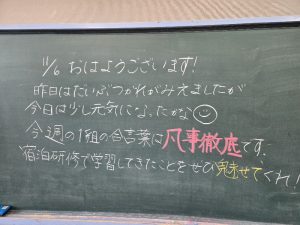 11/6 おはようございます!
昨日はだいぶつかれがみえましたが
今日は少し元気になったかな
今週の1組の合言葉は凡事徹底です、
宿泊研修で学習してきたことをぜひ魅せてくれ!